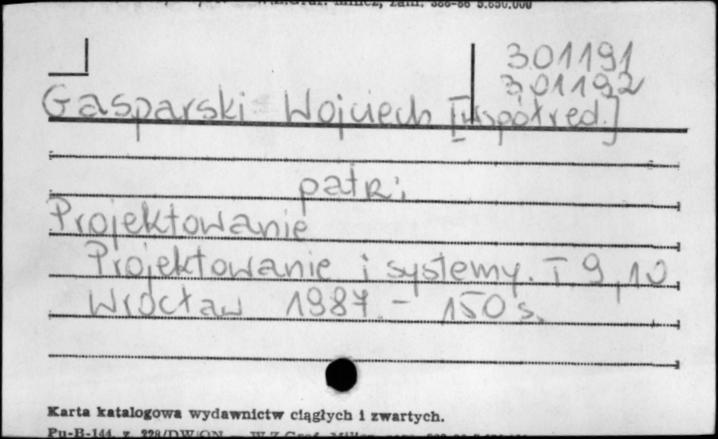 zam. 588-86 5.650.000
301191
301192
Gasparski Wojciech [współred.]
patrz:
Projektowanie
Projektowanie i systemy. T. 9, 10
Wrocław 1987. - 150 s.
Karta katalogowa wydawnictw ciągłych i zwartych.
Pu-B-144, z.